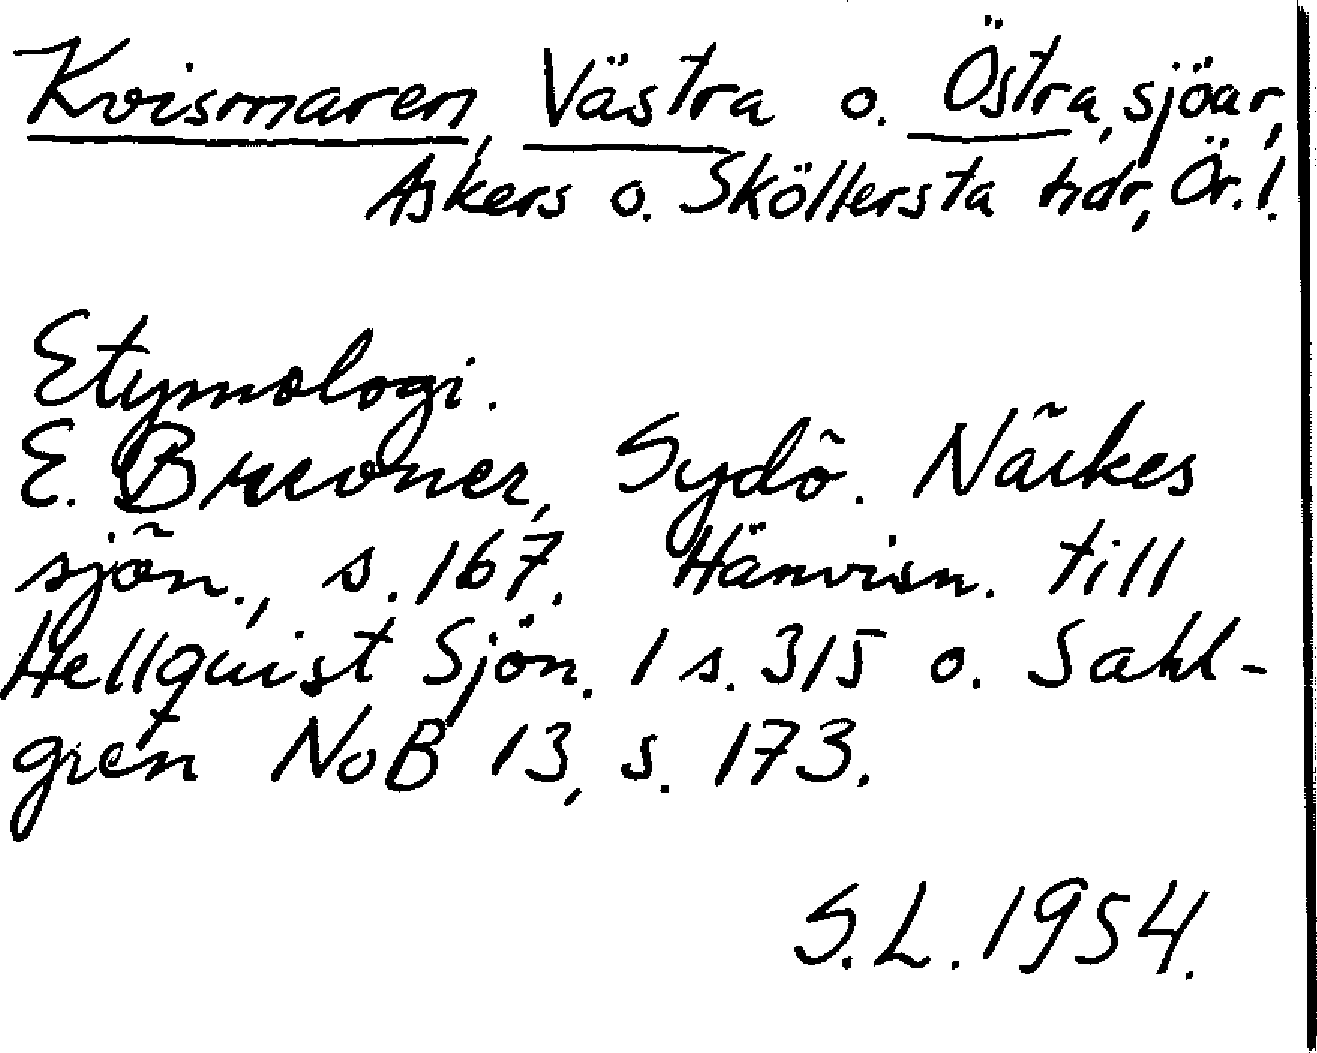 Kvismaren, Västra o. Östra, sjöar,
Askers o. Sköllersta hdr, Ör. l.
Etymologi.
E. Brevner, Sydö. Närkes
sjön., s. 167. Hänvisn. till
Hellquist Sjön. 1 s. 315 o. Sahl-
gren NoB 13, s. 173.
S.L. 1954.